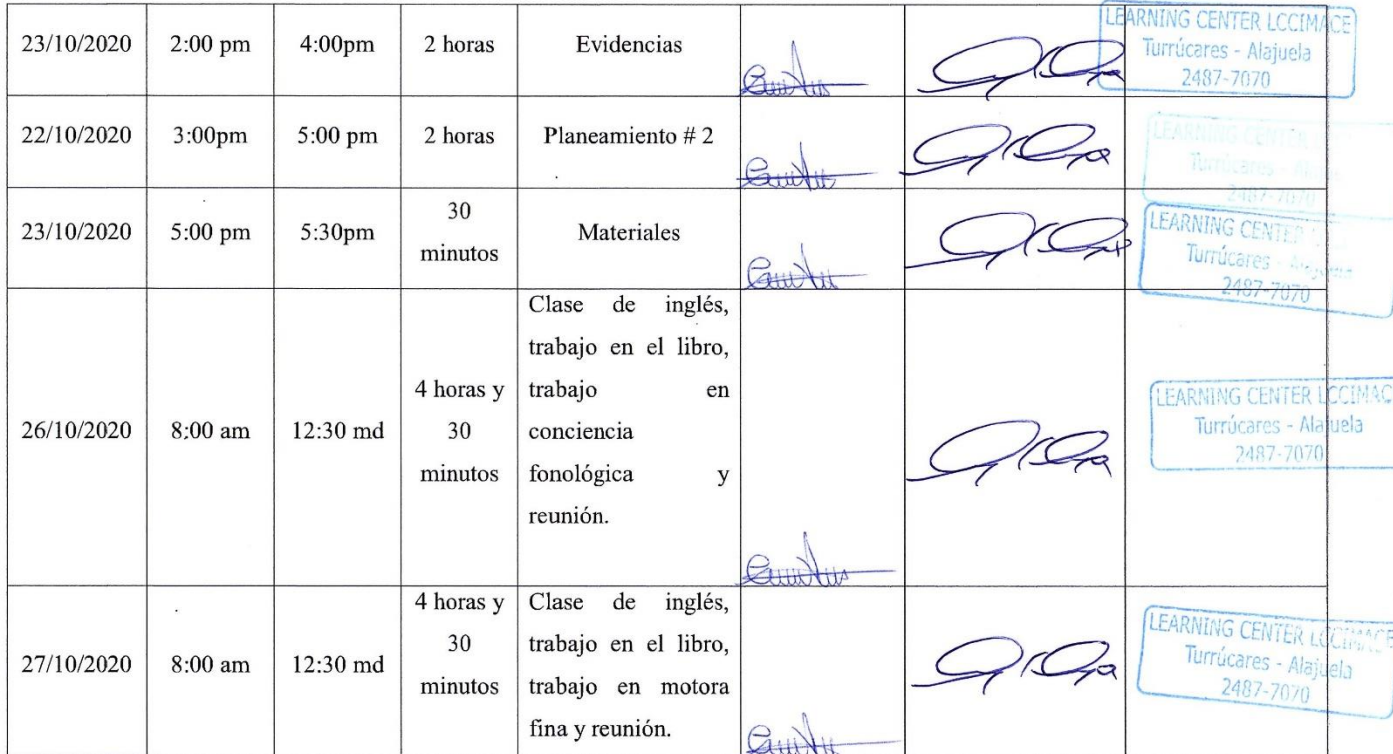 23/10/2020 2:00 pm 4:00pm 2 horas Evidencias
LEARNING CENTER LCCIMACE
Turrúcares - Alajuela
2487-7070
22/10/2020 3:00pm 5:00 pm 2 horas Planeamiento # 2
LEARNING CENTER
Turrúcares -
2487-7070
23/10/2020 5:00 pm 5:30pm
30
minutos
Materiales
LEARNING CENTER
Turrúcares - Alajuela
2487-7070
26/10/2020 8:00 am 12:30 md
4 horas y
30
minutos
Clase de inglés,
trabajo en el libro,
trabajo en
conciencia
fonológica y
reunión.
LEARNING CENTER LCCIMAC
Turrúcares - Alajuela
2487-7070
27/10/2020 8:00 am 12:30 md
4 horas y
30
minutos
Clase de inglés,
trabajo en el libro,
trabajo en motora
fina y reunión.
LEARNING CENTER LCCIMACE
Turrúcares - Alajuela
2487-7070